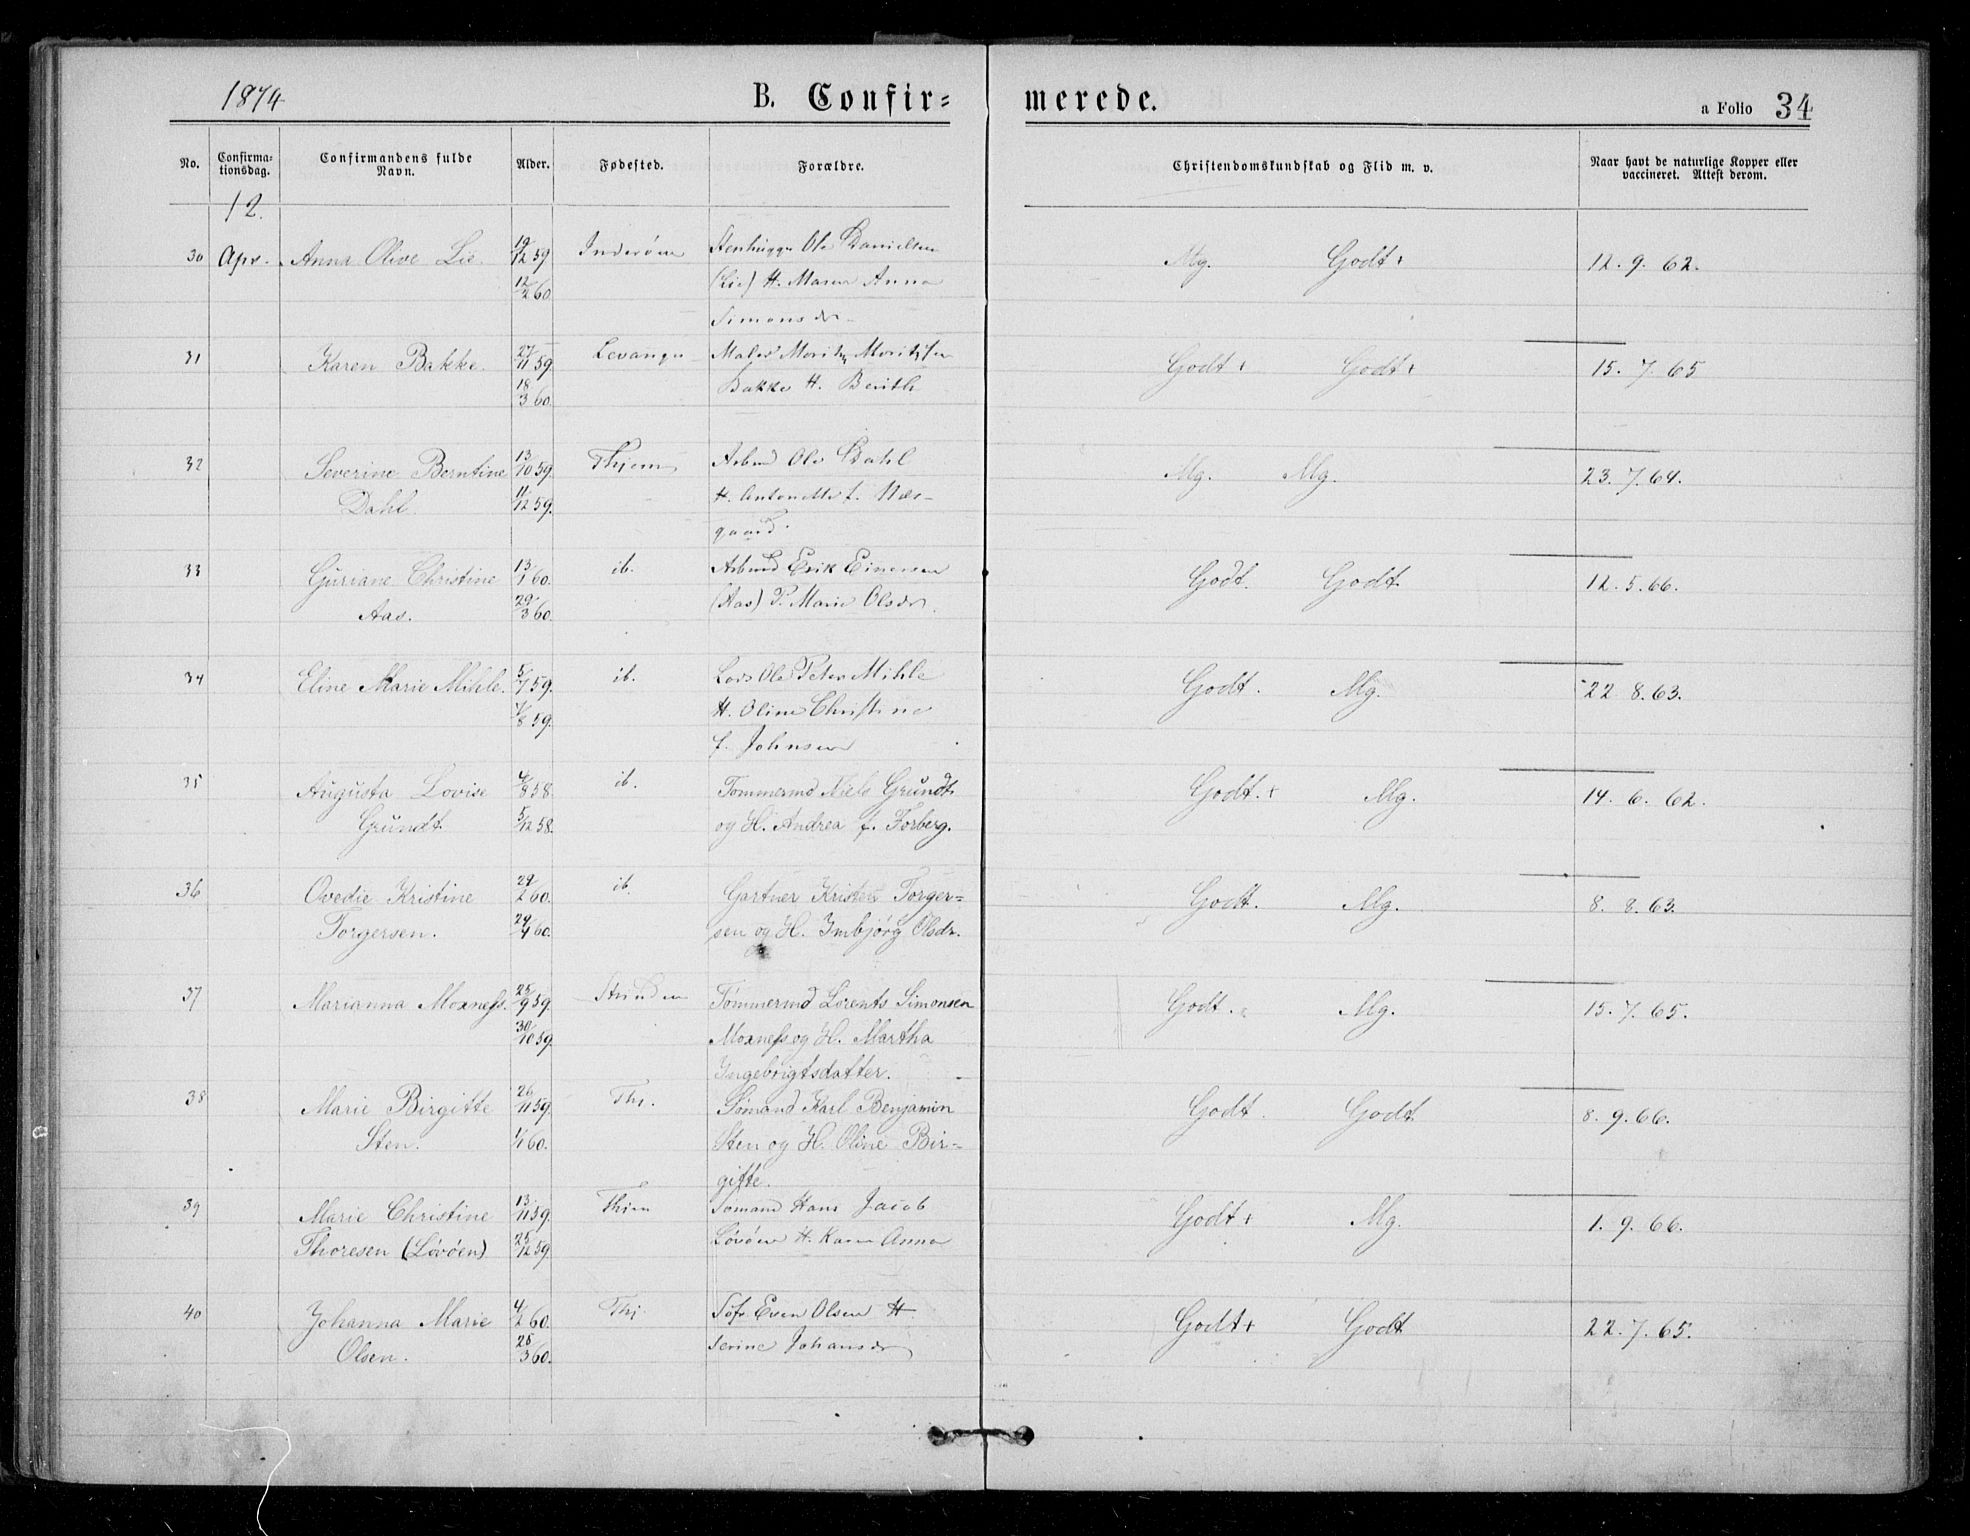 1874
B. Confir= merede.
a Folio 34
No. Confirma=tionsdag. Confirmandens fulde Navn. Alder. Fødested. Forældre. Christendomskundskab og Flid m. v. Naar havt de naturlige Kopper eller vaccineret. Attest derom.
12.
30 Apr. Anna Olive Lie. 19/12 59 Inderöen Stenhugger Ole Danielsen Mg. Godt+ 12. 9. 62.
12/2 60. (Lie) H. Maren Anna
Simonsdr
31 Karen Bakke. 27/11 59 Levanger Maler Moritz Moritzsen Godt+ Godt+ 15. 7. 65
18/3 60. Bakke H. Berith
32 Severine Berntine 13/10 59. Thjem Arbmd Ole Dahl Mg. Mg. 23. 7. 64.
Dahl. 11/12 59. H. Antonette f. Næs-
gaard.
33 Guriane Christine 13/1 60. ib. Arbmd Erik Einersen Godt. Godt. 12. 5. 66.
Aas. 29/3 60. (Aas) P. Marie Olsdr.
34 Eline Marie Mihle. 5/7 59. ib. Lods Ole Peter Mihle Godt. Mg. 22 8. 63.
/8 59. H. Oline Christine
f. Johnsen
35 Augusta Lovise 4/8 58. ib. Tømmermd Niels Grundt Godt.+ Mg. 14. 6. 62.
Grundt 5/12 58. og H. Andrea f. Forberg.
36 Ovedie Kristine 29/2 60. ib. Gartner Kristen Torger= Godt. Mg. 8. 8. 63.
Torgersen. 29/4 60. sen og H. Imbjørg Olsdr.
37 Marianna Moxness. 25/9 59. Strinden Tømmermd Lorents Simonsen Godt. Mg. 15. 7. 65.
30/10 59. Moxness og H. Martha
Ingebrigtsdatter.
38 Marie Birgitte 26/11 59. Thj. Sømand Karl Benjamin Godt. Godt 8. 9. 66.
Sten. 1/1 60. Sten og H. Oline Bir=
gitte.
39 Marie Christine 13/11 59. Thjem Sømand Hans Jacob Godt+ Mg. 1. 9. 66.
Thoresen (Løvøen) 25/12 59. Løvöen H. Karen Anna
40 Johanna Marie 4/2 60. Thj. Söfr Even Olsen H. Godt+ Godt 22. 7. 65.
Olsen. 25/3 60. Serine Johansdr